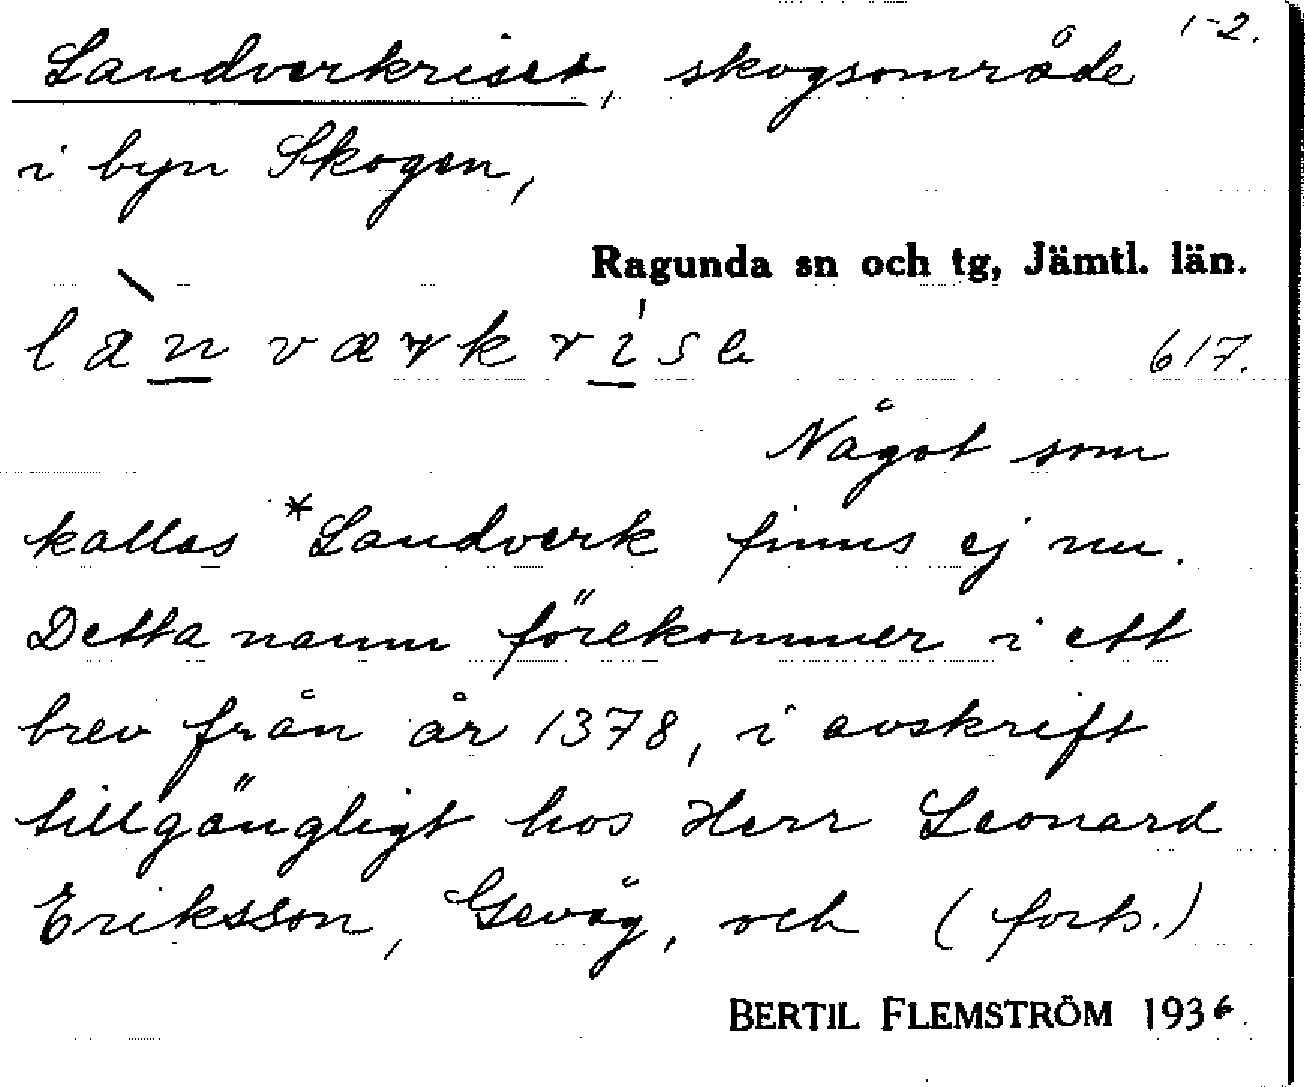 1-2.
Landverkriset, skogsområde
i byn Skogen,
Ragunda sn och tg, Jämtl. län.
lànværkrise
617.
Något som
kallas *Landverk finns ej nu.
Detta namn förekommer i ett
brev från år 1378, i avskrift
tillgängligt hos Herr Leonard
Eriksson, Gevåg, och (forts.)
BERTIL FLEMSTRÖM 1936